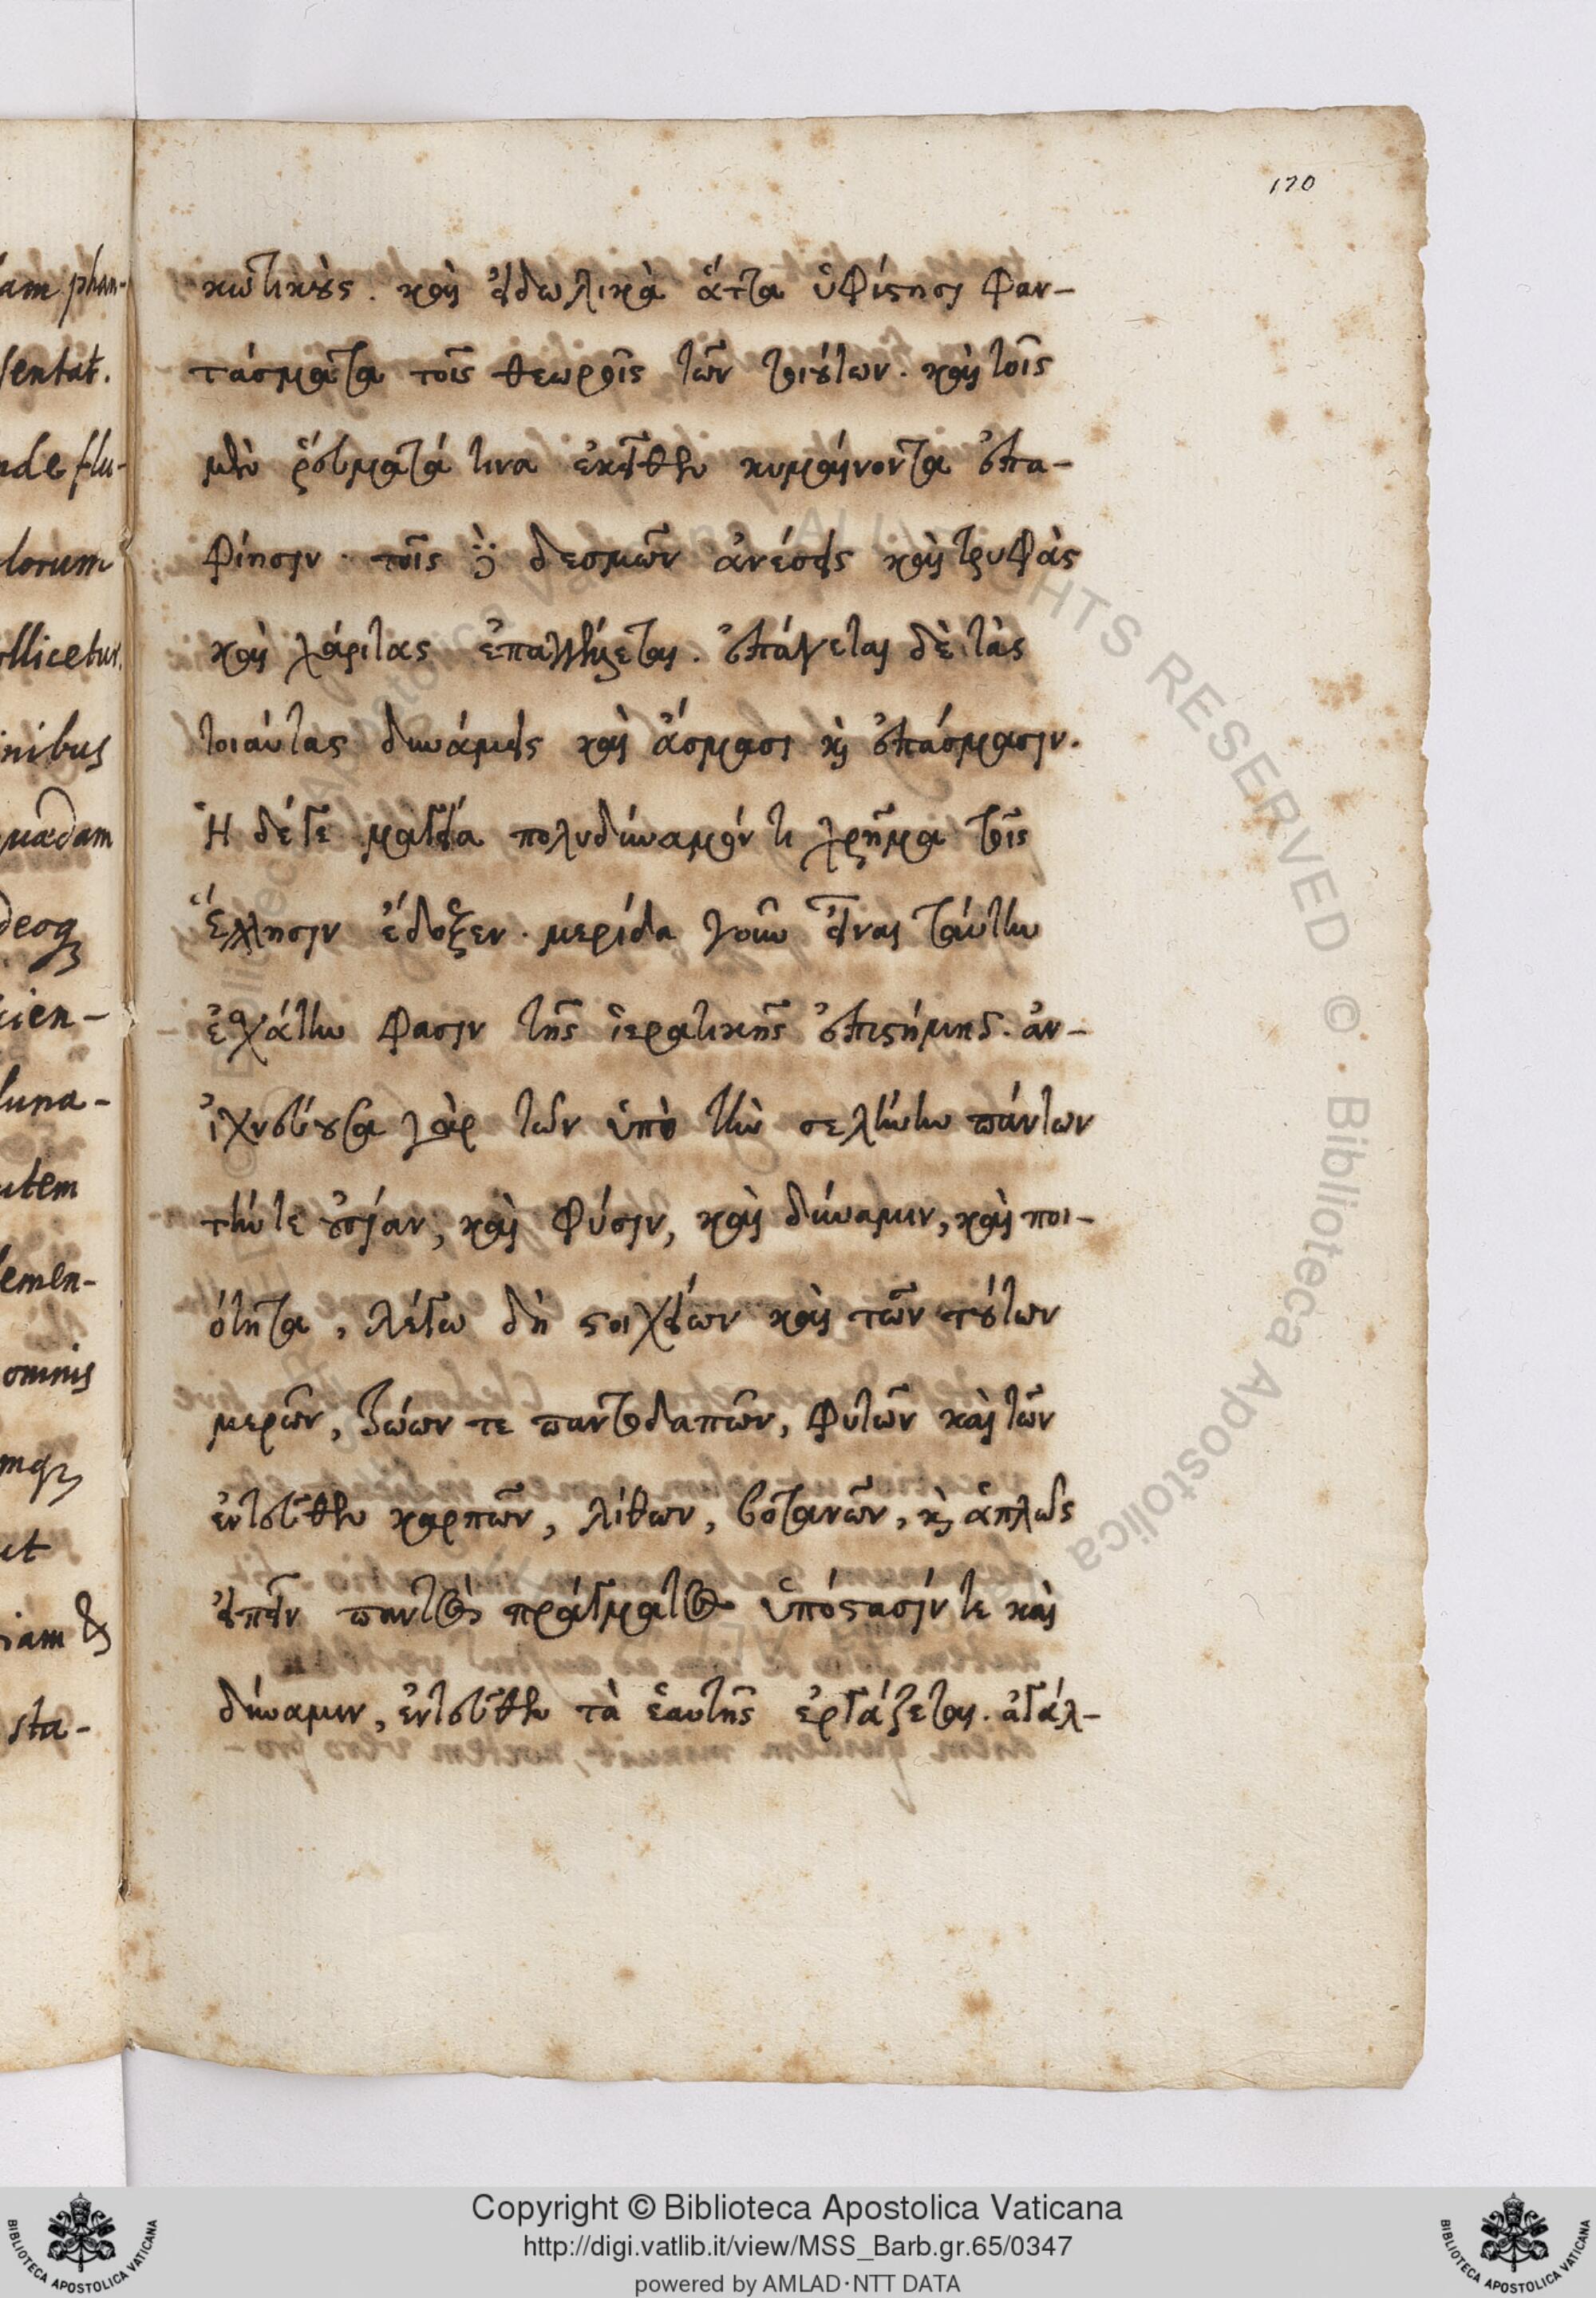 170
am phan-
sentat.
nde flu-
dorum
ollicetur.
inibus
quadam
deoq
cien-
luna-
utem
lemen-
omnis
mq
ut
iam &
sta-
κωτικούς. καὶ εἰδωλικὰ ἄττα ὑφίστησι φαν-
τάσματα τοῖς θεωροῖς τῶν τοιούτων. καὶ τοῖς
μὲν ῥεύματά τινα ἐκεῖθεν κυμαίνοντα ἐπα-
φίησιν. τοῖς δὲ δεσμῶν ἀνέσεις καὶ τρυφὰς
καὶ χάριτας ἐπαγγέλλεται. ἐπάγεται δὲ τὰς
τοιαύτας δυνάμεις καὶ ᾄσμασι καὶ ἐπάσμασιν.
Ἡ δέ γε μαγεία πολυδύναμόν τι χρῆμα τοῖς
Ἕλλησιν ἔδοξεν. μερίδα γοῦν εἶναι ταύτην
ἐσχάτην φασιν τῆς ἱερατικῆς ἐπιστήμης. ἀν-
ιχνεύουσα γὰρ τῶν ὑπὸ τὴν σελήνην πάντων
τήν τε οὐσίαν, καὶ φύσιν, καὶ δύναμιν, καὶ ποι-
ότητα, λέγω δὴ στοιχείων καὶ τῶν τούτων
μερῶν, ζώων τε παντοδαπῶν, φυτῶν καὶ τῶν
ἐντεῦθεν καρπῶν, λίθων, βοτανῶν, καὶ ἁπλῶς
εἰπεῖν παντὸς πράγματος ὑπόστασίν τε καὶ
δύναμιν, ἐντεῦθεν τὰ ἑαυτῆς ἐργάζεται. ἀγάλ-
Copyright © Biblioteca Apostolica Vaticana
http://digi.vatlib.it/view/MSS_Barb.gr.65/0347
powered by AMLAD·NTT DATA
BIBLIOTECA APOSTOLICA VATICANA
BIBLIOTECA APOSTOLICA VATICANA